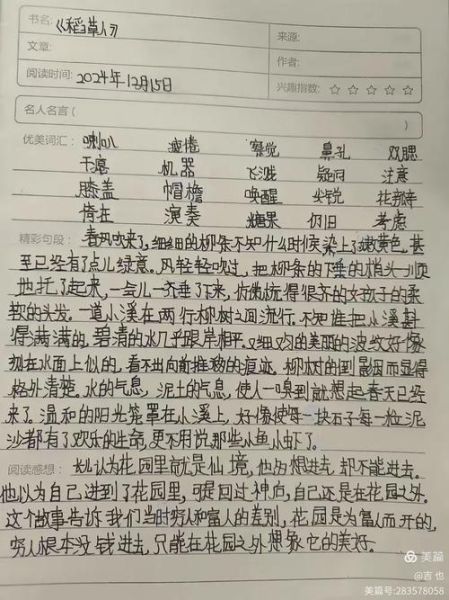 书名:《稻草人》
来源:
文章:
作者:
阅读时间: 2024年12月15日
兴趣指数: ☆ ☆ ☆ ☆ ☆
名人名言 ( )
优美词汇: 喇叭 疲倦 察觉 鼻孔 双腮
干瘪 机器 飞溅 疑问 注意
膝盖 帽檐 唤醒 尖锐
倚在 演奏 糖果 仍旧 考虑
精彩句段: 春风吹来了,细细的柳条不知什么时候染上了嫩黄色,甚
至已经有了点儿绿意。风轻轻吹过,把柳条的下垂的梢头一顺
地托了起来,一会儿一齐垂了下来,仿佛梳得很齐的女孩子的柔
软的头发。一道小溪在两行柳树之间流行。不知谁把小溪斟
得满满的,碧清的水几乎跟岸相平。又细又匀的美丽的波纹好像
刻在水面上似的,看不出向前推移的痕迹。柳树的倒影因而显得
格外清楚。水的气息,泥土的气息,使人一嗅到就想起春天已经
来了。温和的阳光笼罩在小溪上,好像使每一块石子每一粒泥
沙都有了欢乐的生命,更不用说那些小鱼小虾了。
阅读感想: 认为花园里就是仙境,他历想进去,却不能进去。
他以为自己进到了花园里,可是回过神,自己还是在花园之外。
这个故事告诉我们当时穷人和富人的差别,花园是为富人而开的,
穷人根本没钱进去,只能在花园之外想象它的美好。
美篇
@吉也
美篇号:283578058